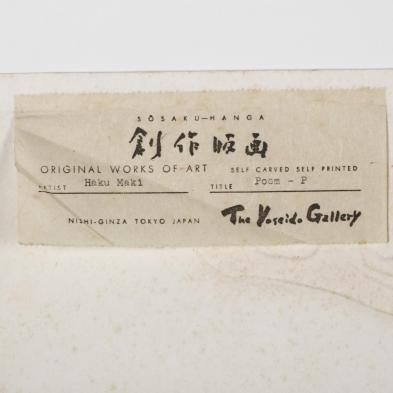 SŌSAKU-HANGA
創作版画
ORIGINAL WORKS OF ART SELF CARVED SELF PRINTED
ARTIST Haku Maki TITLE Poom - P
NISHI-GINZA TOKYO JAPAN The Yoseido Gallery